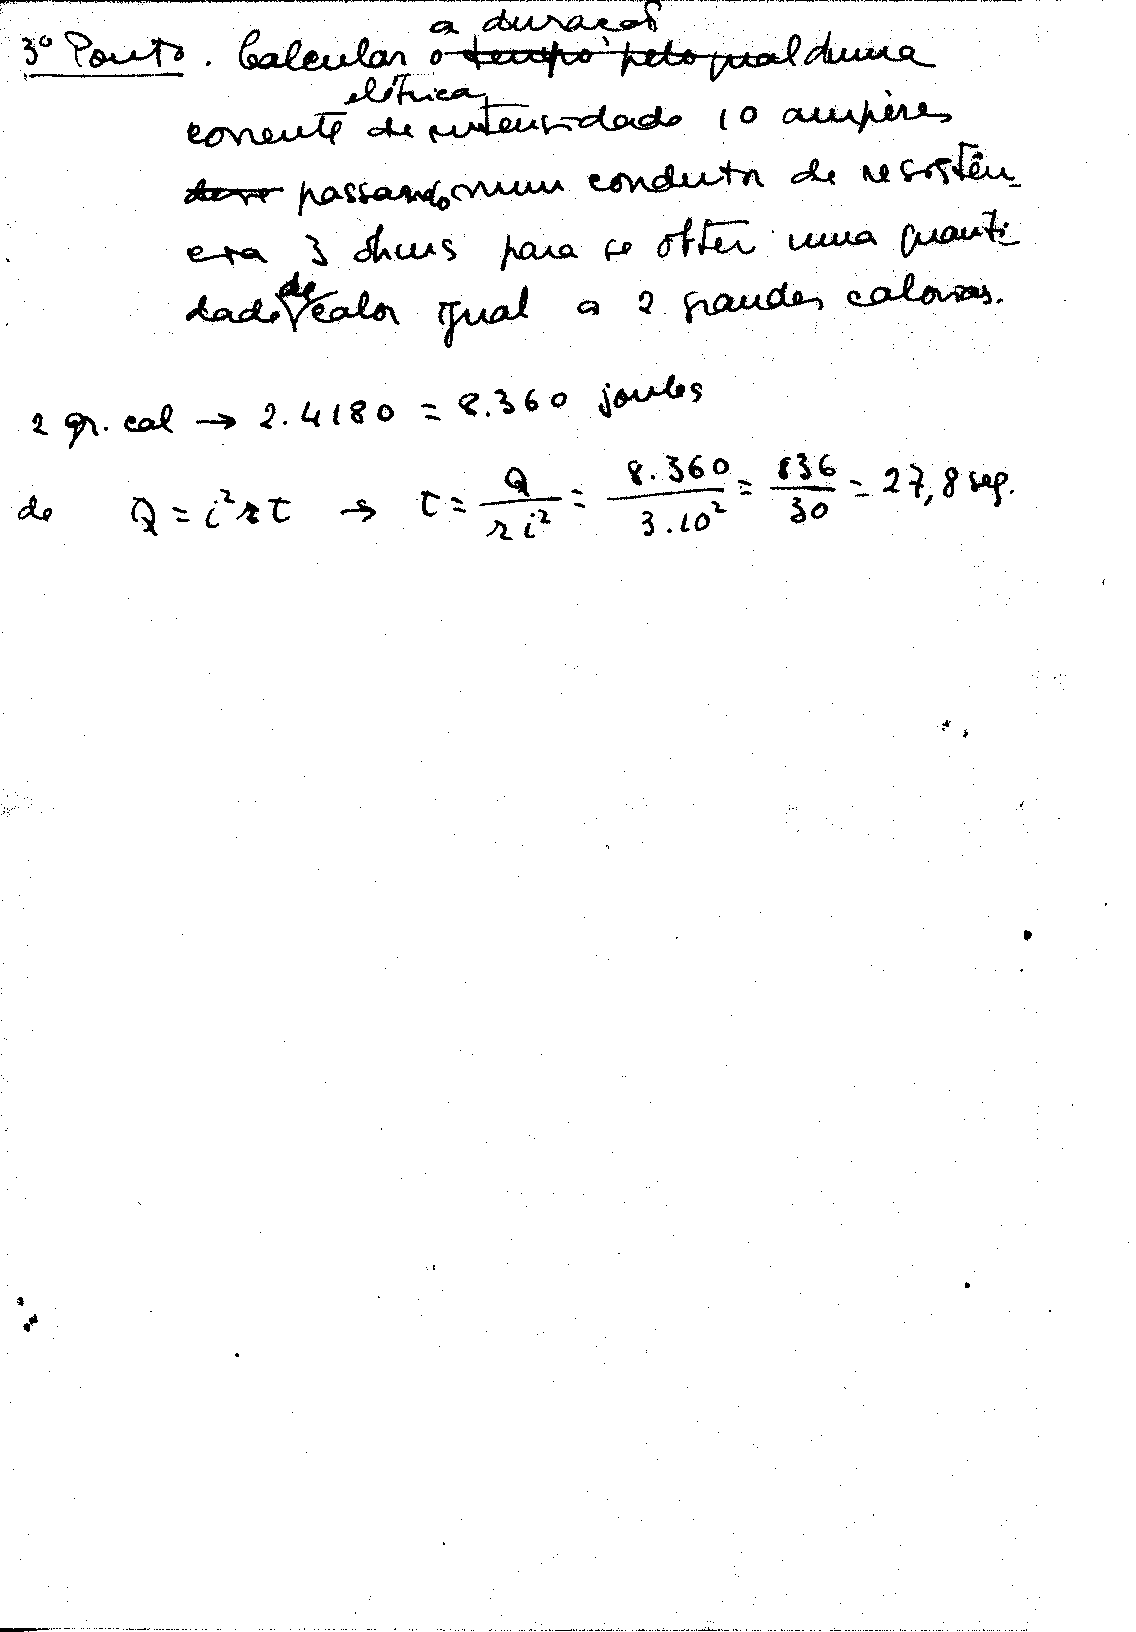 a duração
3º Ponto. Calcular o tempo pelo qual duma
elétrica
corrente de intensidade 10 ampères
deve passando num condutor de resistên-
cia 3 ohms para se obter uma quanti-
dade de calor igual a 2 grandes calorias.
2 gr. cal → 2.4180 = 8.360 joules
de Q = i²rt → t = Q / r i² = 8.360 / 3.10² = 836 / 30 = 27,8 seg.